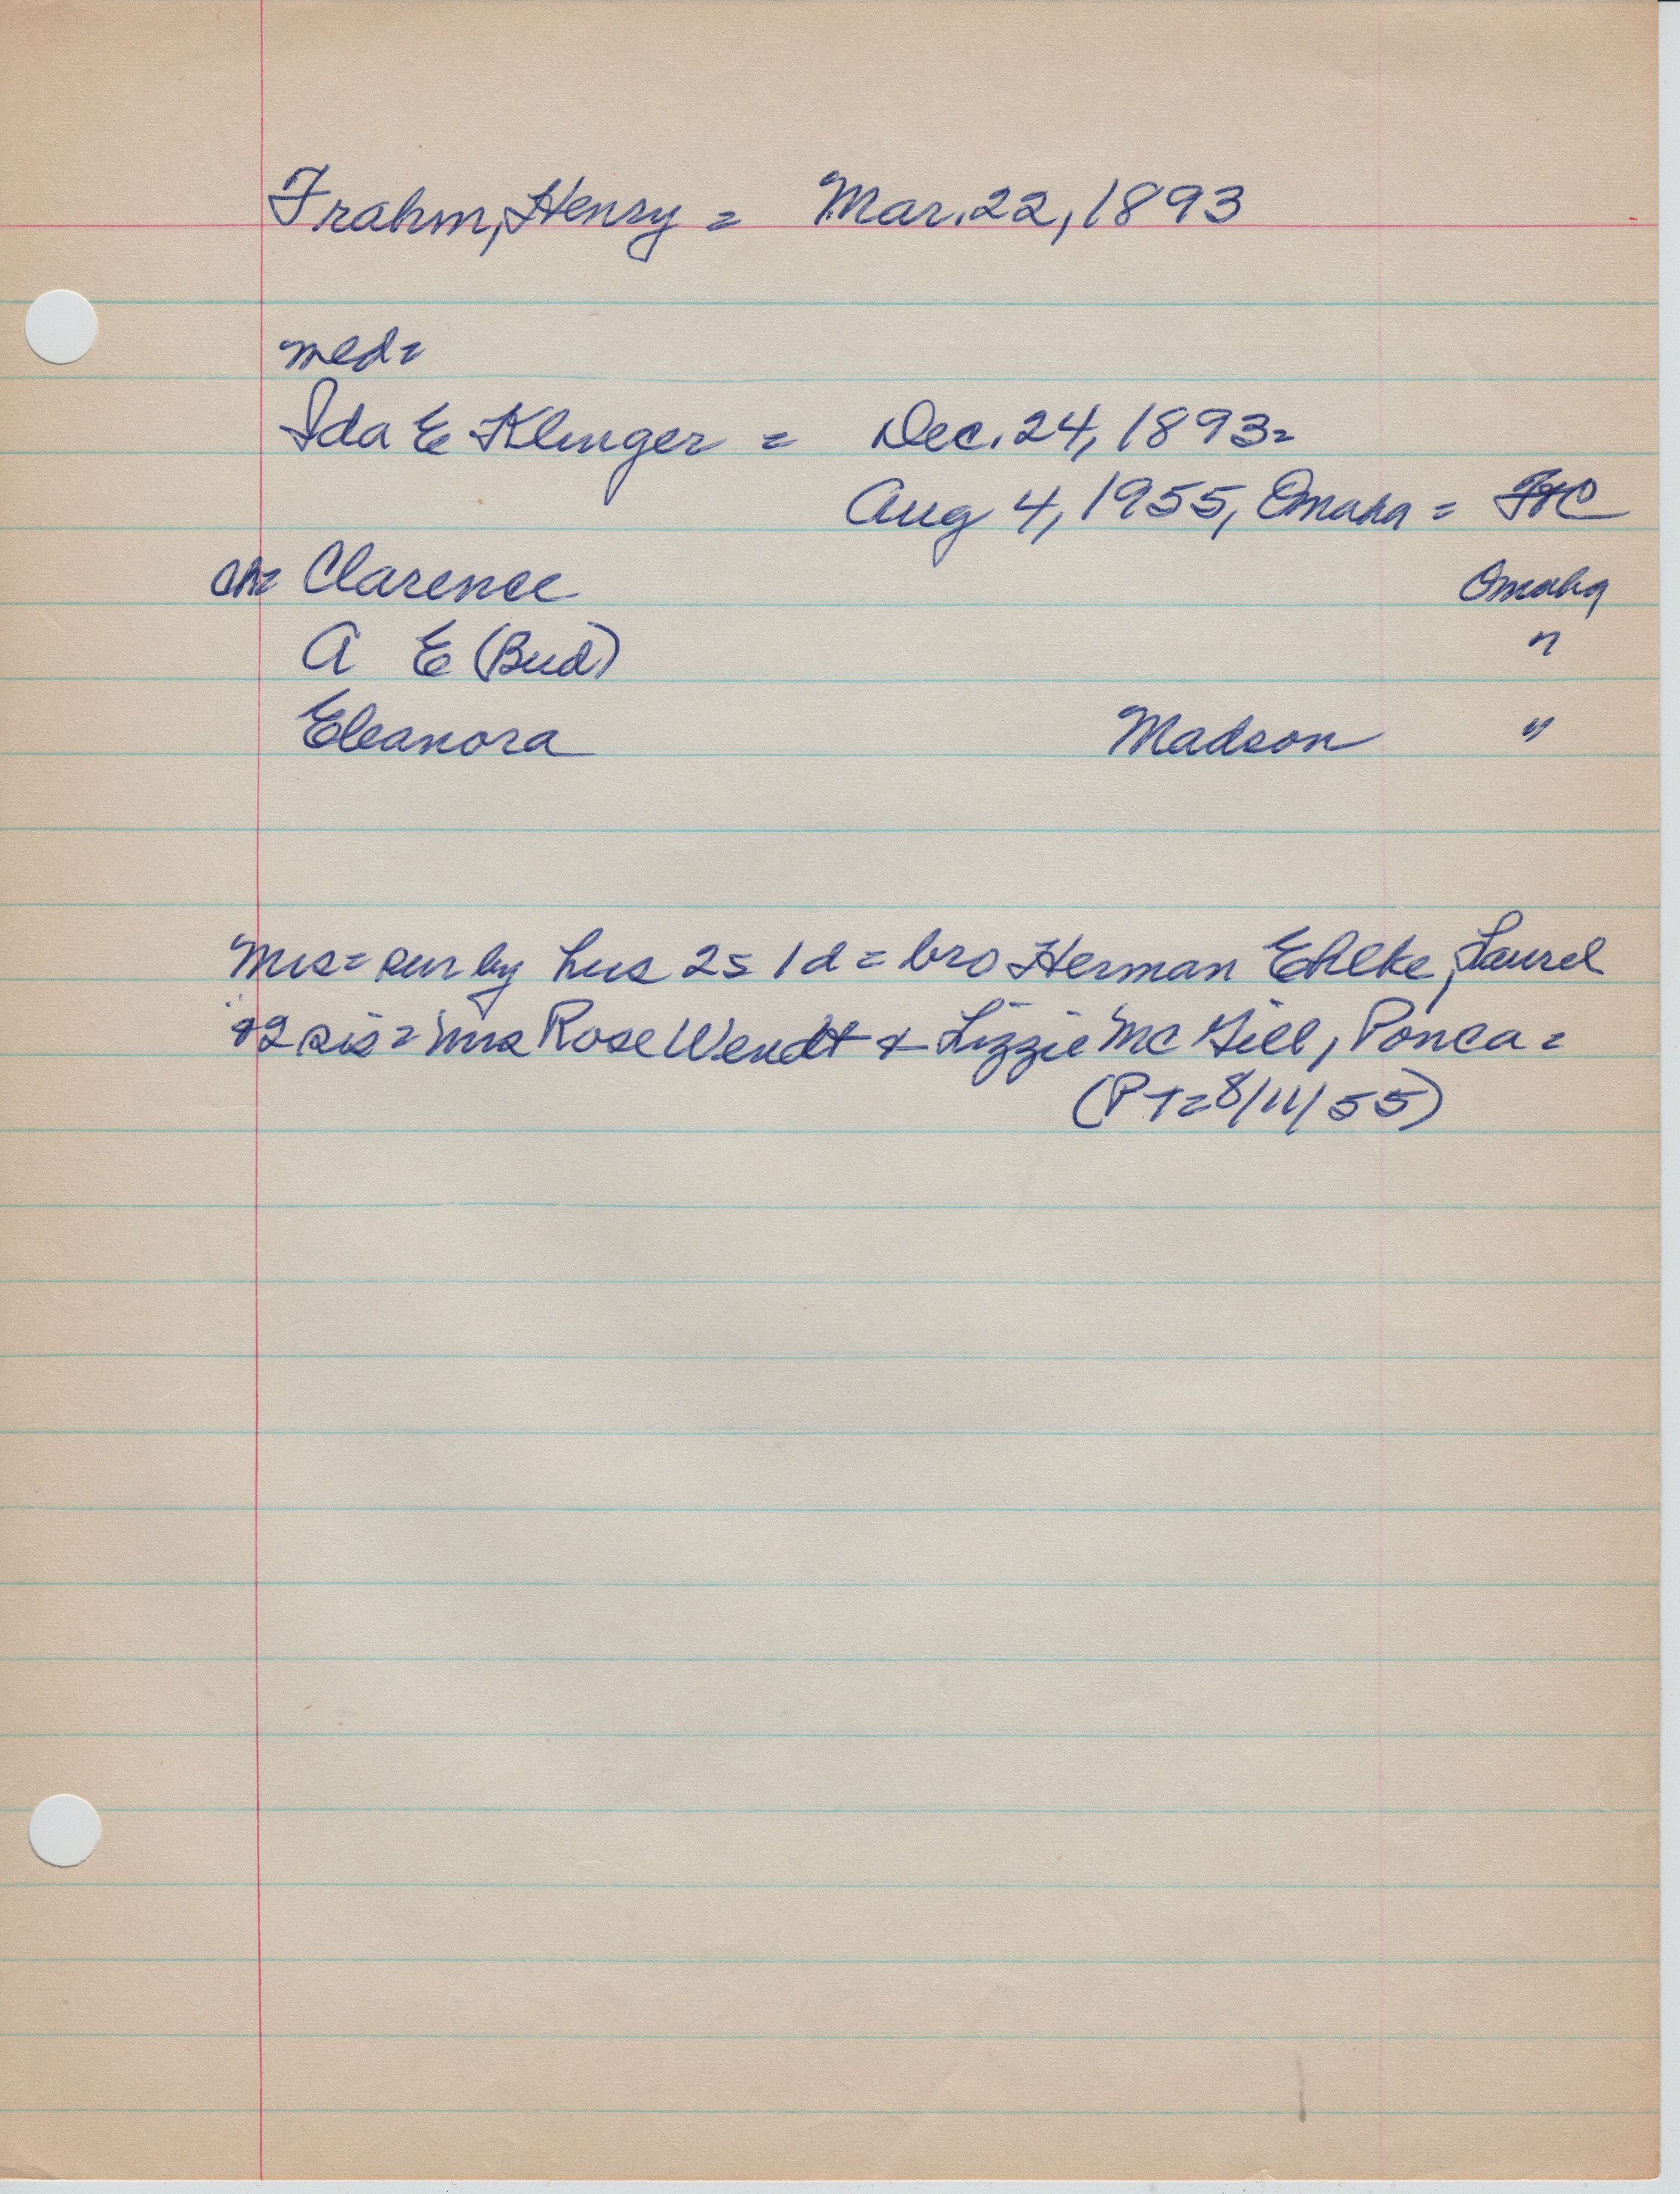 Frahm, Henry = Mar. 22, 1893
med=
Ida E Klinger = Dec. 24, 1893=
Aug 4, 1955, Omaha =
ch= Clarence Omaha
A E (Bud) "
Eleanora Madson "
Mrs= sur by hus 2s 1d = bro Herman Ehlke, Laurel
+2 sis = Mrs Rose Wendt & Lizzie McGill, Ponca =
(PT= 8/11/55)